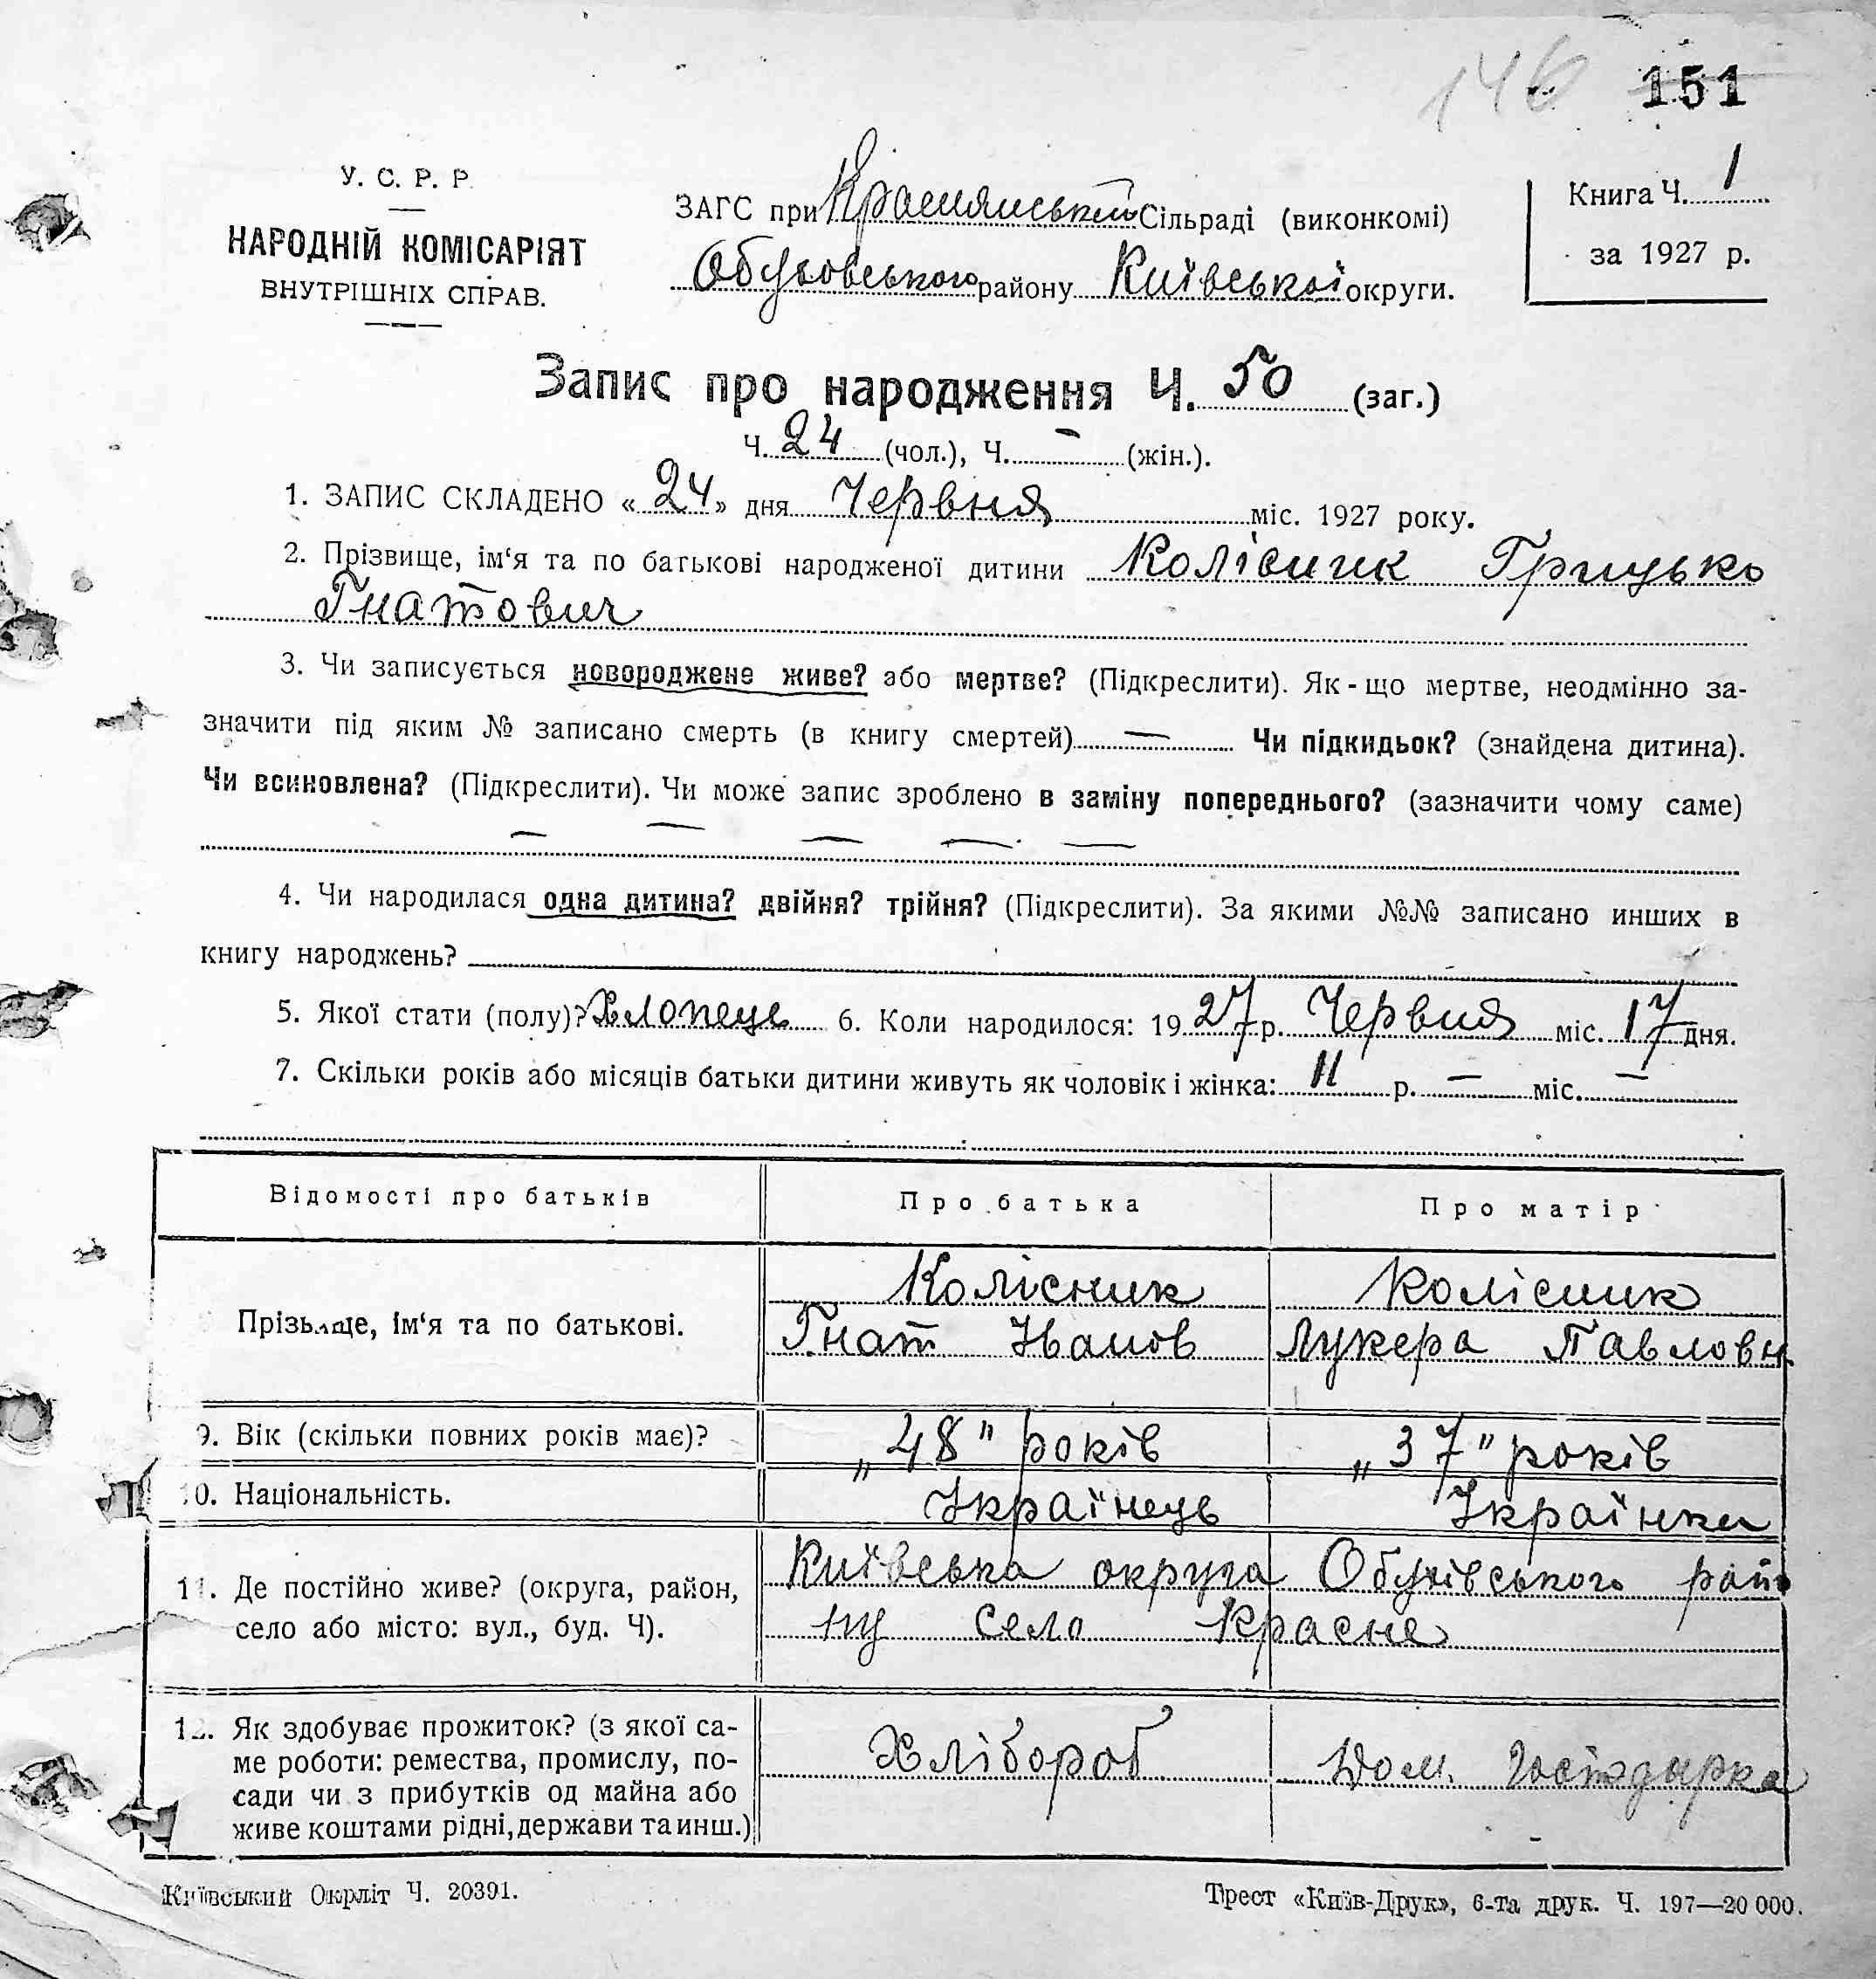 146 151
У. С. Р. Р.
НАРОДНІЙ КОМІСАРІЯТ
ВНУТРІШНІХ СПРАВ.
ЗАГС при Краснянській Сільраді (виконкомі)
Обуховського району Київської округи.
Книга Ч. 1
за 1927 р.
Запис про народження Ч. 50 (заг.)
Ч. 24 (чол.), Ч. — (жін.).
1. ЗАПИС СКЛАДЕНО «24» дня Червня міс. 1927 року.
2. Прізвище, ім‘я та по батькові народженої дитини Колісник Грицько
Гнатович
3. Чи записується новороджене живе? або мертве? (Підкреслити). Як-що мертве, неодмінно за-
значити під яким № записано смерть (в книгу смертей) — Чи підкидьок? (знайдена дитина).
Чи всиновлена? (Підкреслити). Чи може запис зроблено в заміну попереднього? (зазначити чому саме)
— — — — —
4. Чи народилася одна дитина? двійня? трійня? (Підкреслити). За якими №№ записано инших в
книгу народжень?
5. Якої стати (полу)? Хлопець 6. Коли народилося: 1927 р. Червня міс. 17 дня.
7. Скільки років або місяців батьки дитини живуть як чоловік і жінка: 11 р. — міс. —
Відомості про батьків Про батька Про матір
Прізвище, ім‘я та по батькові.
Колісник Колісник
Гнат Іванов Лукера Павловн
9. Вік (скільки повних років має)? „48" років „37" років
10. Національність. Українець Українка
11. Де постійно живе? (округа, район,
село або місто: вул., буд. Ч).
Київська округа Обухівського райо
ну село Красне
12. Як здобуває прожиток? (з якої са-
ме роботи: ремества, промислу, по-
сади чи з прибутків од майна або
живе коштами рідні, держави та инш.)
Хлібороб Дом.
Київський Окрліт Ч. 20391.
Трест «Київ-Друк», 6-та друк. Ч. 197—20 000.